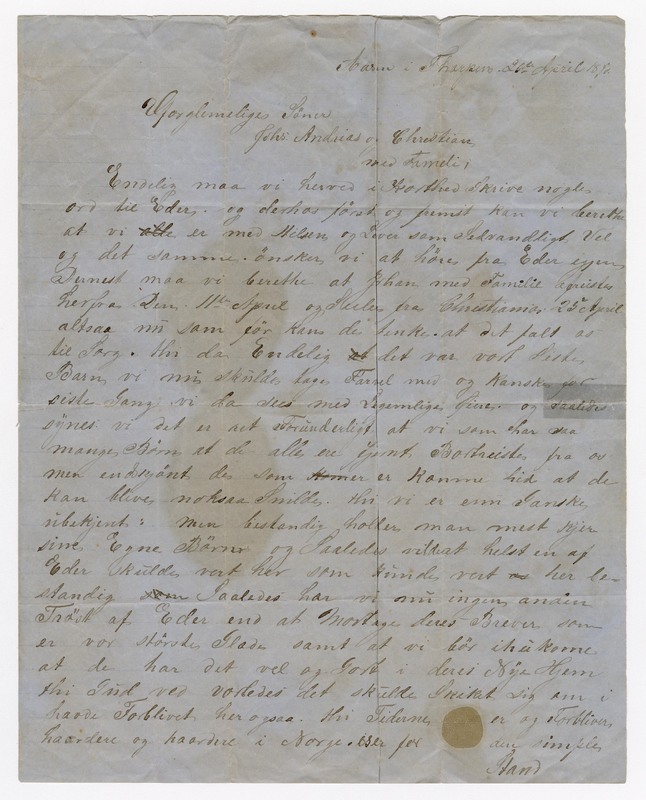 i April
Sørner
Johs Andrias og Christian
med Fameli,
Endelig maa vi herved i Korthed skrive nogle
ord til Eder. og derhos først og fremst kan vi berette
at vi alle er med Helsen og Lever som Sedvandligt, Vel
og det samme ønsker vi at høre fra Eder igjen
Dernest maa vi berette at Johan med Familie afreiste
herfra Den 11te April og Seiler fra Christiania 23de April
altsaa nu som før kan de tenke at det falt os
til Sorg. thi da Endelig at det var vort Siste
Barn vi nu skulde tage Farvel med og Kanske for
siste Gang vi da sees med Legemlige Øine. og saaledes
synes vi det er ret Forunderligt at vi som har saa
mange Børn at de alle ere Bortreiste fra os
men endskjønt de som er komne hid at de
kan blive noksaa Snilde. thi vi er enu Ganske
ubekjent: men bestandig holder man mest kjer
sine Egne Børn og Saaledes helst en af
Eder skulde vert her som kunde vert her be-
standig Saaledes har vi nu ingen anden
Trøst af Eder end at Mottage deres Brever som
er vor største Glede samt at vi bør ihukome
at de har det vel og Got i deres Nye Hjem
thi Gud ved vorledes det skulde Skikket sig om i
havde Forblivet her ogsaa. thi Tiderne er og Forbliver
haardere og haardere i Norge. for den simple
Stand